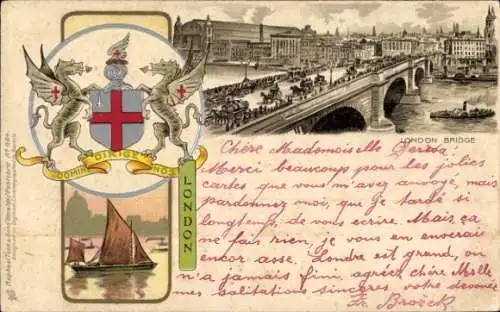 LONDON BRIDGE
DOMINE DIRIGE NOS
LONDON
Chère Mademoiselle
Merci beaucoup pour les jolies
cartes que vous m'avez envoyé, mais
pardonnez moi, que je tarde si
longtemps, de vous ecrire. Mais ça
ne fais rien, je vous en enverais
encor asse. Londre est grand, on
n'a jamais fini agreér chère Mlle
mes salitations sincères votre devouée
Fr. Brožek